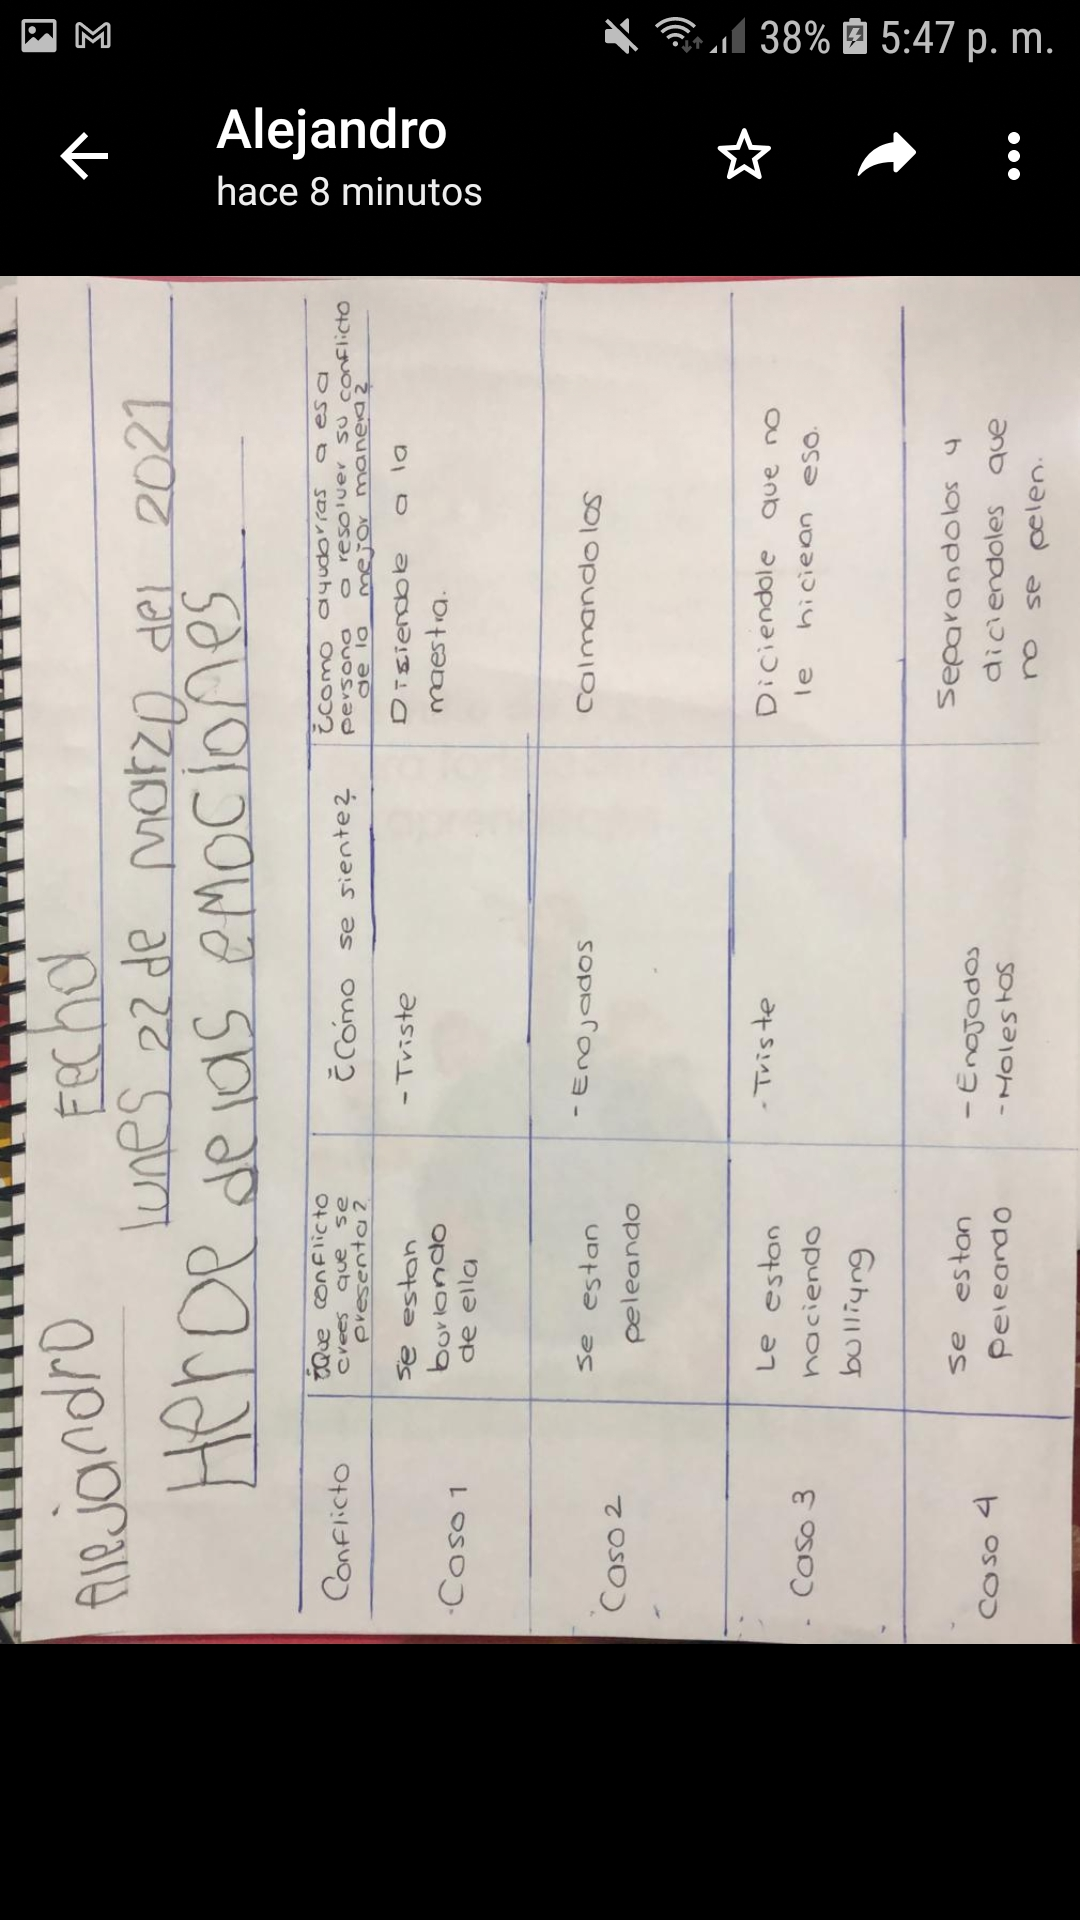 38% 5:47 p. m.
Alejandro
hace 8 minutos
Alejandro Fecha
lunes 22 de marzo del 2021
Heroe de las emociones
Conflicto
¿Que conflicto
crees que se
presenta?
¿Cómo se siente?
¿como ayudarias a esa
persona a resolver su conflicto
de la mejor manera?
Caso 1
se estan
burlando
de ella
- Triste
Disiendole a la
maestra.
Caso 2
se estan
peleando
- Enojados
Calmandolos
Caso 3
Le estan
haciendo
bulliyng
- Triste
Diciendole que no
le hicieran eso.
Caso 4
se estan
peleando
- Enojados
- Molestos
Separandolos y
diciendoles que
no se pelen.